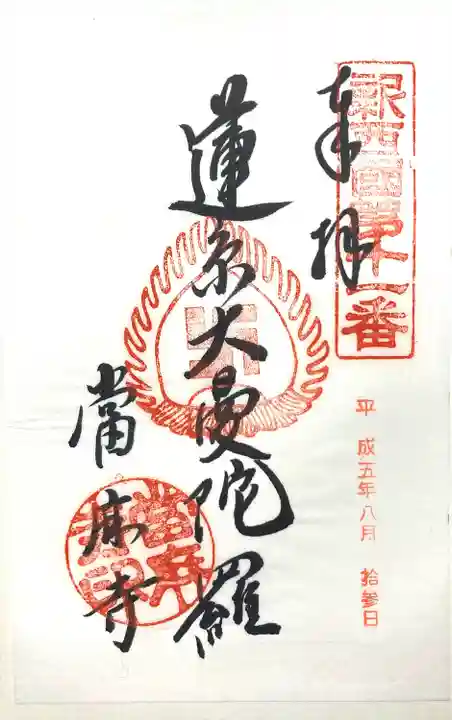 新西國第十一番
奉拝
平成五年八月拾参日
蓮糸大曼陀羅
當麻寺